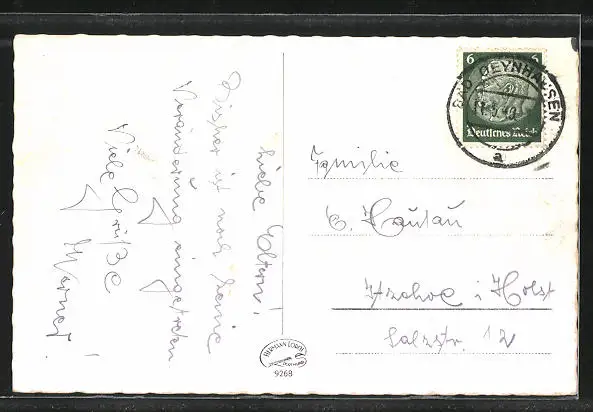 Liebe Eltern!
Bisher ist noch keine
Veränderung eingetreten
Viele Grüße
Werner!
6 6
Deutsches Reich
BAD OEYNHAUSEN
a
Familie
Itzehoe i. Holst
Salzstr. 12
HERMANN LORCH
DORTMUND
9268